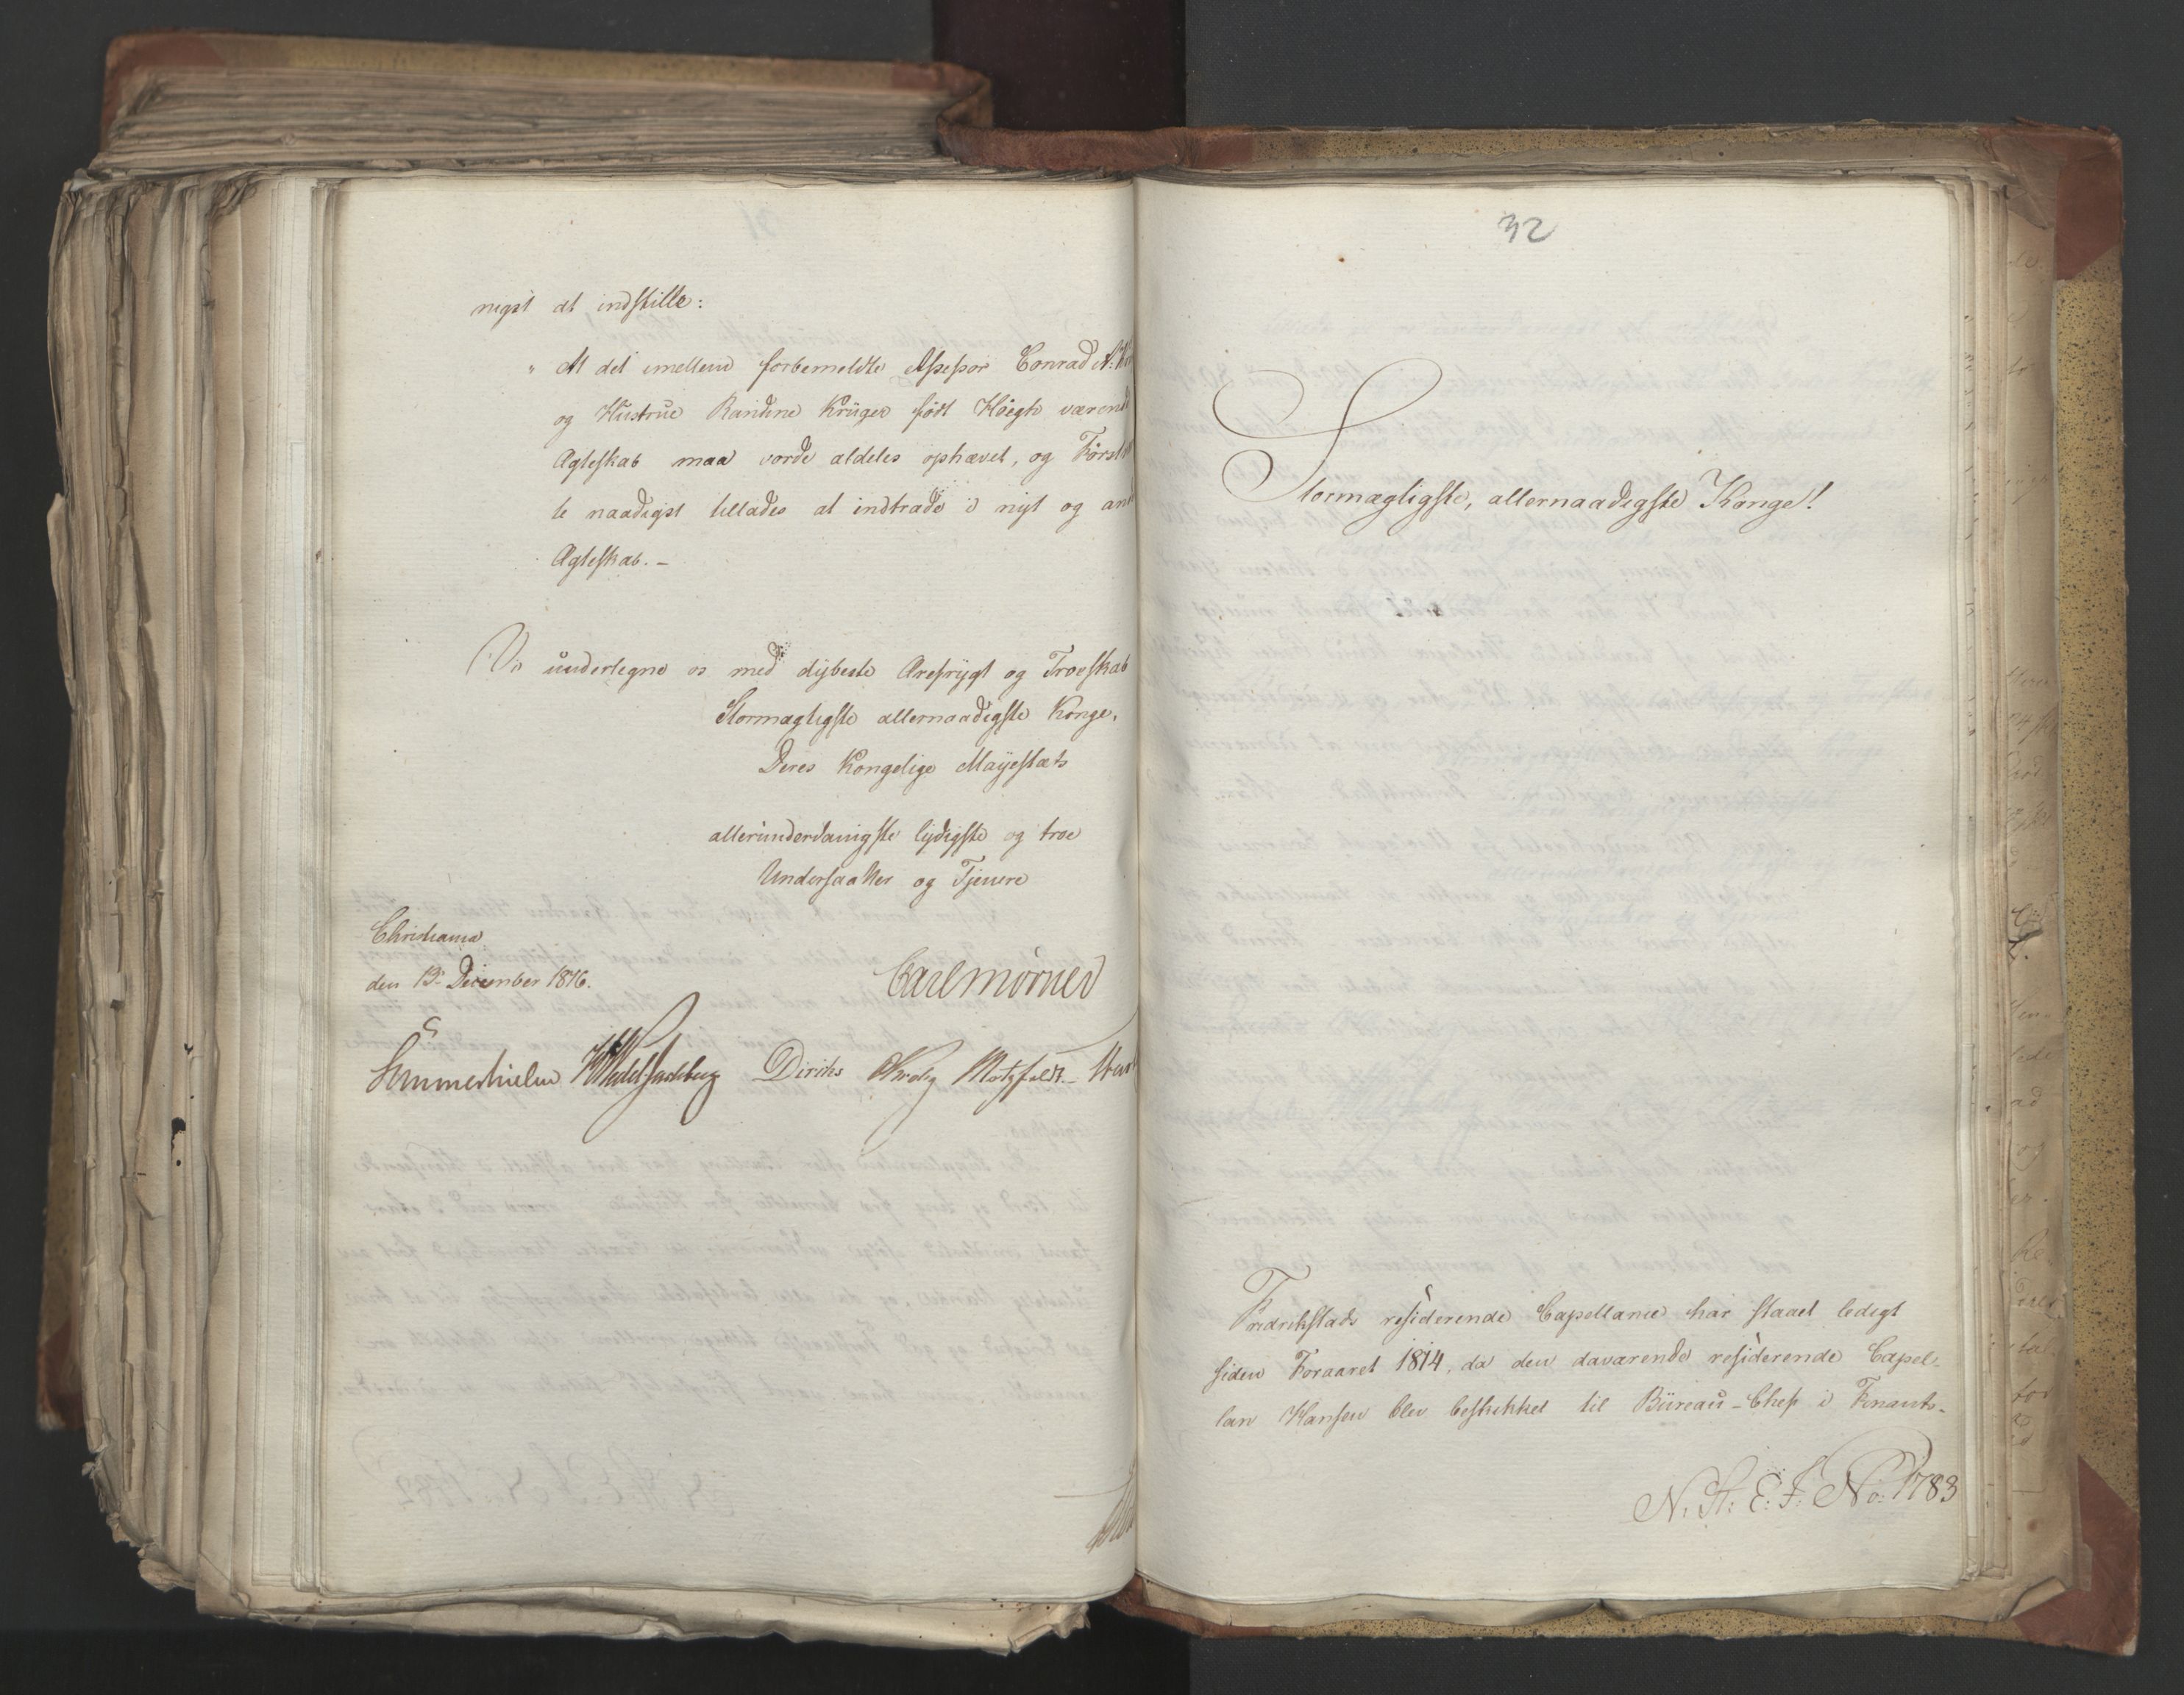 nigst at indstille:
„At det imellem forbemeldte Assessor Conrad A:
og Hustrue Randine Krüger født Höegh værend
Ægteskab maa vorde aldeles ophævet, og Først
te naadigst tillades at indtræde i nyt og and
Ægteskab. –
Vi undertegne os med dybeste Ærefrygt og Troeskab
Stormægtigste allernaadigste Konge,
Deres Kongelige Mayestæts
allerunderdanigste lydigste og troe
Undersaatter og Tjenere
Christiania
den 13 December 1816.
Carl Mörner
Sommerhielm HWedelJarlsberg Diriks Krog Motzfeldt
32
Stormægtigste, allernaadigste Konge!
Fredrikstads residerende Capellanie har staaet ledigt
siden Foraaret 1814, da den daværende residerende Capel-
lan Hansen blev beskikket til Büreau-Chef i Finants-
N. A: E: F: No: 1783